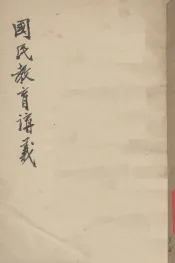 國民教育講義